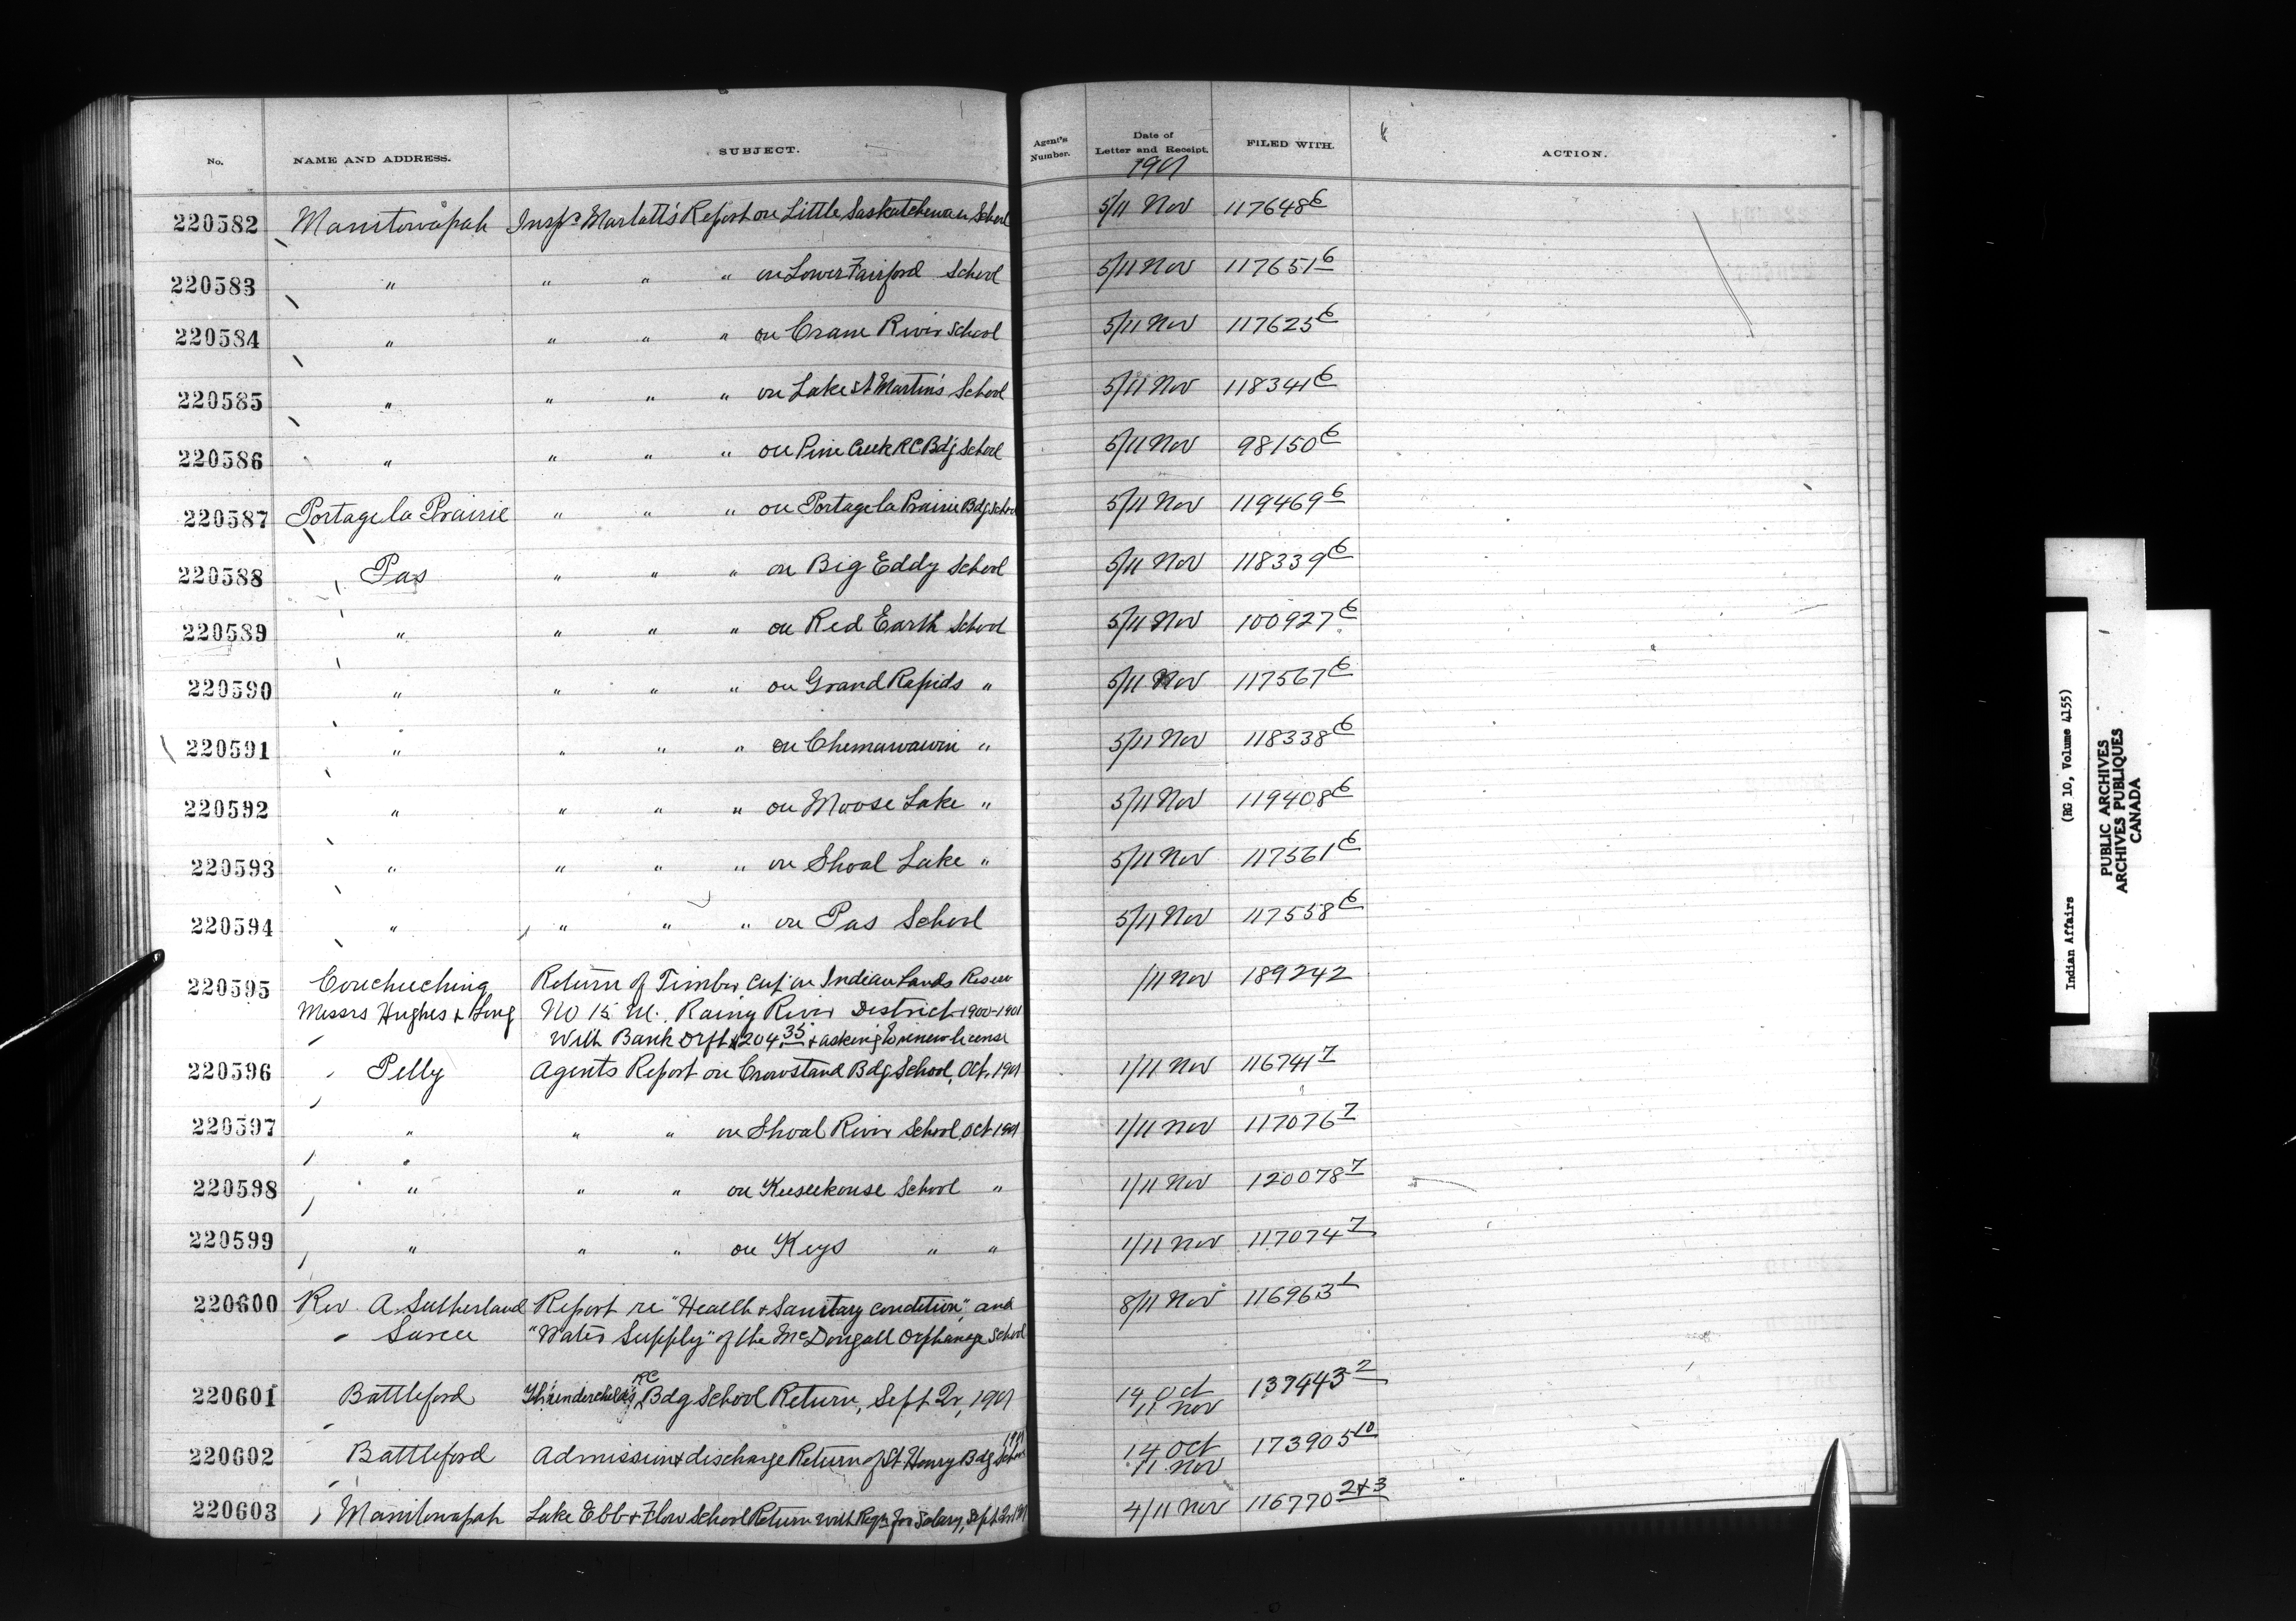 No. NAME AND ADDRESS. SUBJECT. Agent's Number. Date of Letter and Receipt. FILED WITH. ACTION.
1901
220582 Manitowapah Insp.r Marlatt's Report on Little Saskatchewan School 5/11 Nov 117648 6
220583 " " " " on Lower Fairford School 5/11 Nov 117651 6
220584 " " " " on Crane River School 5/11 Nov 117625 6
220585 " " " " on Lake St Martin's School 5/11 Nov 118341 6
220586 " " " " on Pine Creek RC Bdg School 5/11 Nov 98150 6
220587 Portage la Prairie " " " on Portage la Prairie Bdg School 5/11 Nov 119469 6
220588 Pas " " " on Big Eddy School 5/11 Nov 118339 6
220589 " " " " on Red Earth School 5/11 Nov 100927 6
220590 " " " " on Grand Rapids " 5/11 Nov 117567 6
220591 " " " " on Chemawawin " 5/11 Nov 118338 6
220592 " " " " on Moose Lake " 5/11 Nov 119408 6
220593 " " " " on Shoal Lake " 5/11 Nov 117561 6
220594 " " " " on Pas School 5/11 Nov 117558 6
220595 Couchuching Return of Timber cut on Indian Lands Reserve /11 Nov 189242
Messrs Hughes & Long No 15 M. Rainy River District 1900-1901
With Bank Drft $204.35 & asking to renew license
220596 Pelly Agents Report on Crowstand Bdg School, Oct. 1901 1/11 Nov 116741 7
220597 " " " on Shoal River School, Oct 1901 1/11 Nov 117076 7
220598 " " " on Keeseekouse School " 1/11 Nov 120078 7
220599 " " " on Keys " " 1/11 Nov 117074 7
220600 Rev A. Sutherland Report re "Health & Sanitary condition," and 8/11 Nov 116963 1
Sarcee "Water Supply" of the McDougall Orphanage School
220601 Battleford Thunderchild's RC Bdg School Return, Sept Qr, 1901 14 Oct 137443 2
11 Nov
220602 Battleford Admission & discharge Return of St Henry Bdg School 1901 14 Oct 173905 10
11 Nov
220603 Manitowapah Lake Ebb & Flow School Return with Reqn for Salary, Sept Qr 1901 4/11 Nov 116770 2&3
Indian Affairs (RG 10, Volume 4155)
PUBLIC ARCHIVES
ARCHIVES PUBLIQUES
CANADA